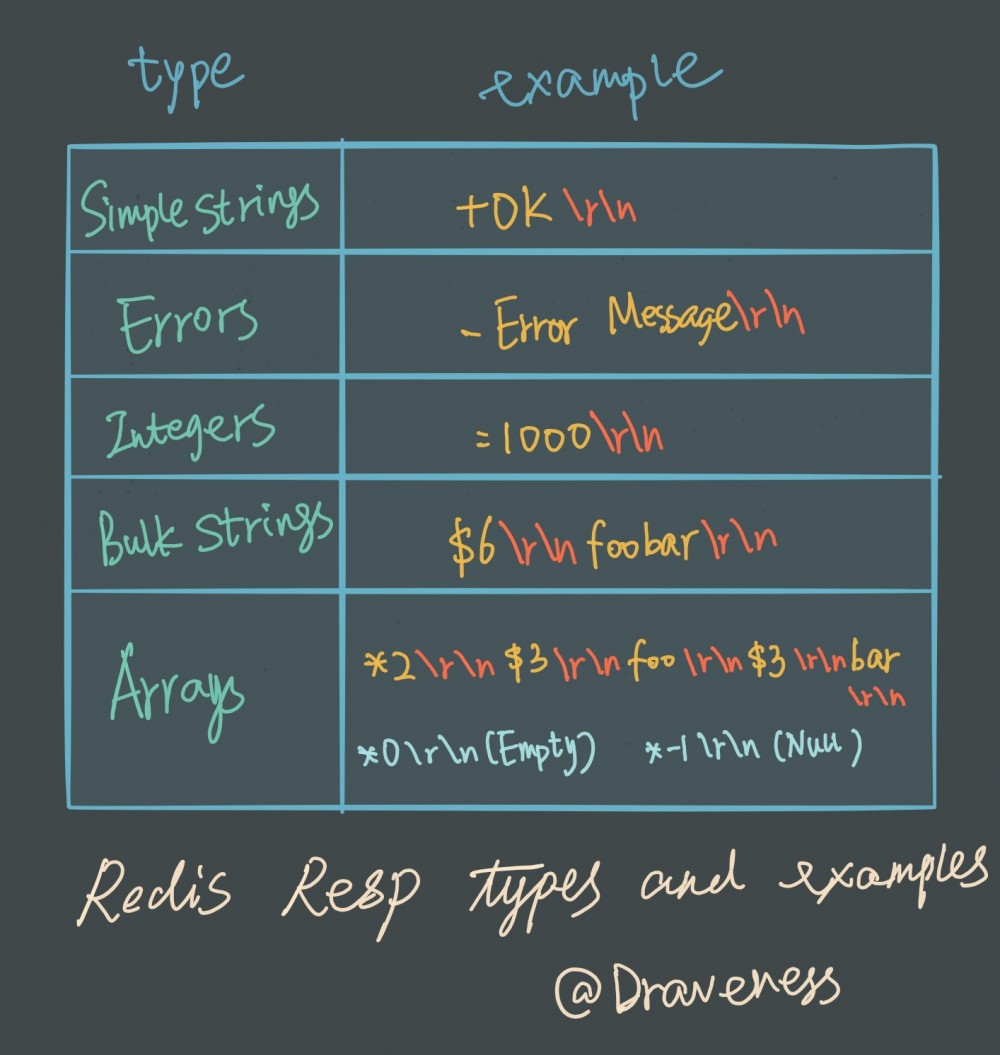 type example
Simple Strings +OK\r\n
Errors - Error Message\r\n
Integers =1000\r\n
Bulk Strings $6\r\nfoobar\r\n
Arrays *2\r\n$3\r\nfoo\r\n$3\r\nbar
\r\n
*0\r\n(Empty) *-1\r\n(Null)
Redis Resp types and examples
@Draveness